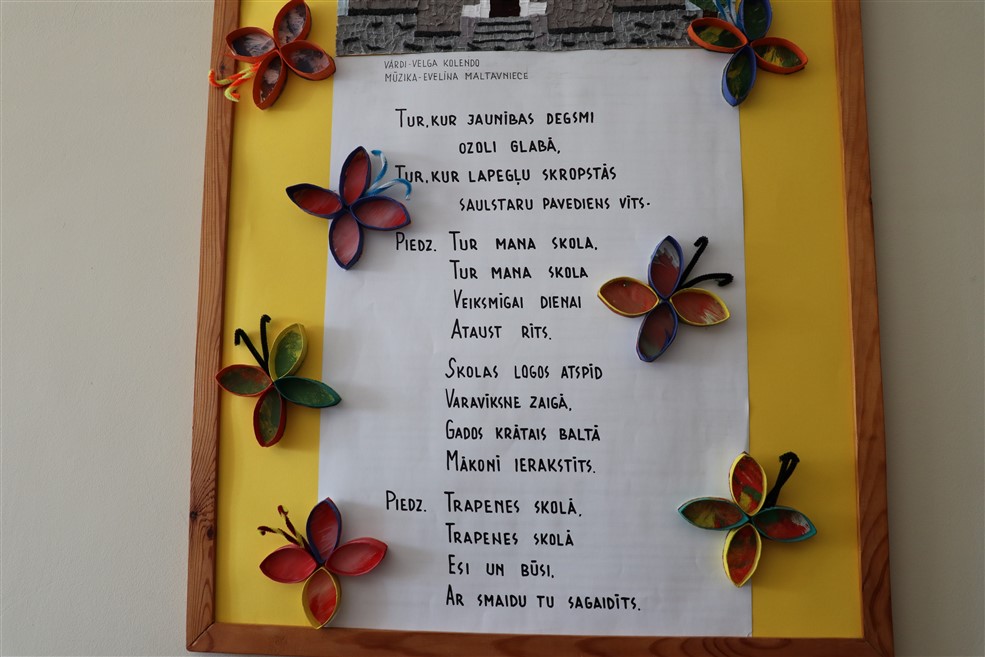 VĀRDI-VELGA KOLENDO
MŪZIKA-EVELĪNA MALTAVNIECE
TUR, KUR JAUNĪBAS DEGSMI
OZOLI GLABĀ,
TUR, KUR LAPEGĻU SKROPSTĀS
SAULSTARU PAVEDIENS VĪTS.
PIEDZ. TUR MANA SKOLA,
TUR MANA SKOLA
VEIKSMĪGAI DIENAI
ATAUST RĪTS.
SKOLAS LOGOS ATSPĪD
VARAVĪKSNE ZAIGĀ,
GADOS KRĀTAIS BALTĀ
MĀKONĪ IERAKSTĪTS.
PIEDZ. TRAPENES SKOLĀ,
TRAPENES SKOLĀ
ESI UN BŪSI,
AR SMAIDU TU SAGAIDĪTS.